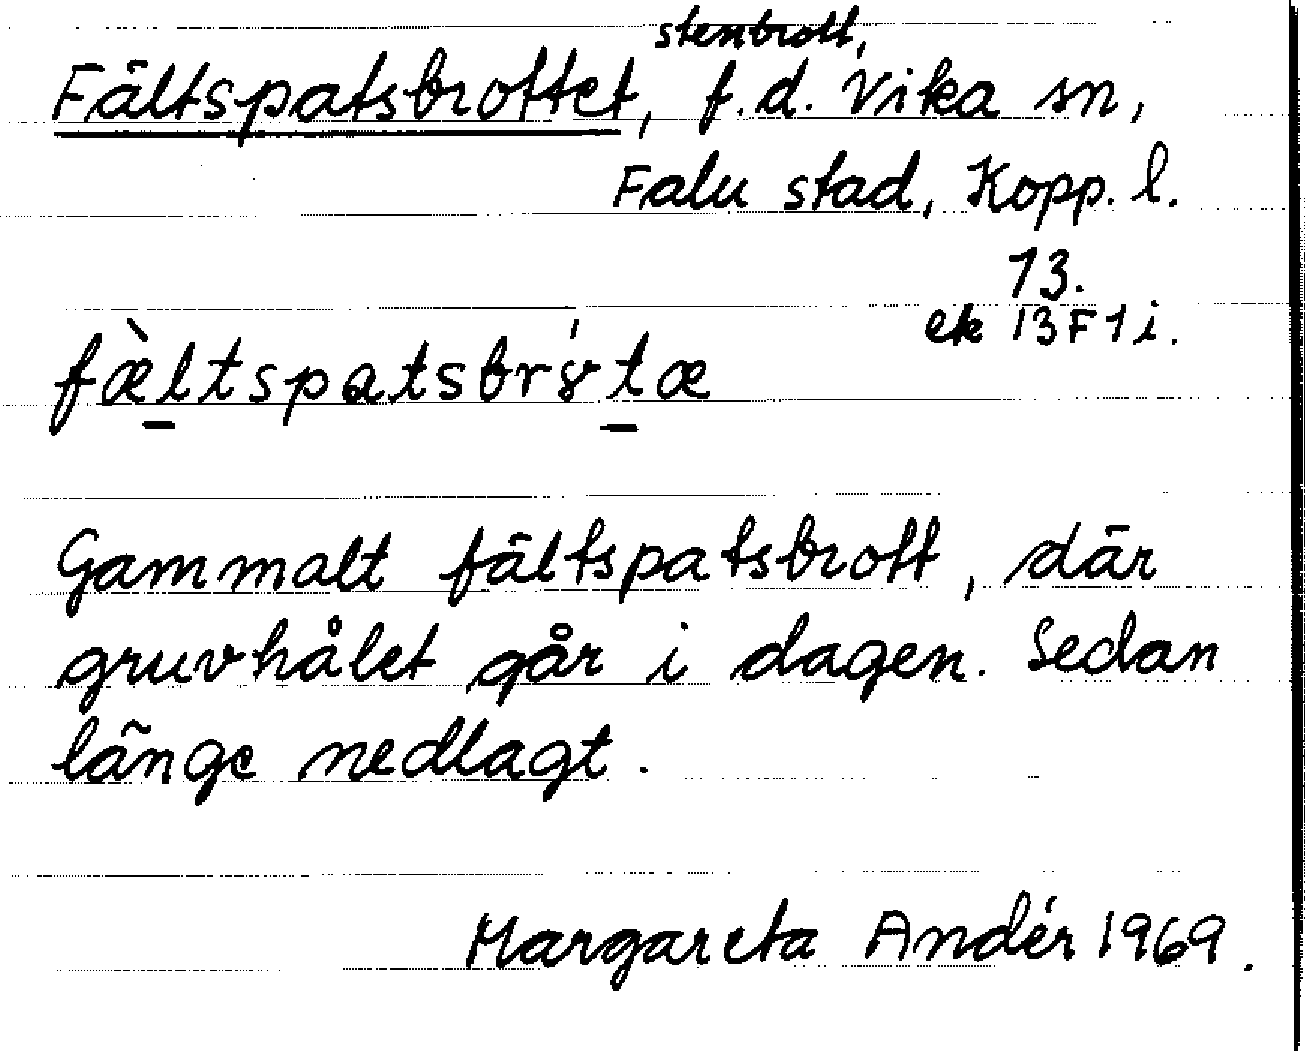 stenbrott,
Fältspatsbrottet, f.d. Vika sn,
Falu stad, Kopp. l.
13.
ek 13F1i.
fæ̀ltspatsbrɤ́tæ
Gammalt fältspatsbrott, där
gruvhålet går i dagen. Sedan
länge nedlagt.
Margareta Andér 1969.